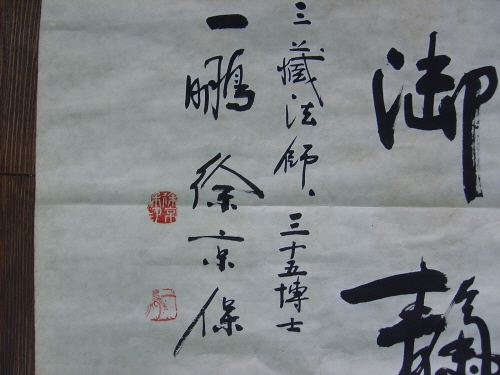 御
三藏法師、三十五博士
一鵬 徐京保